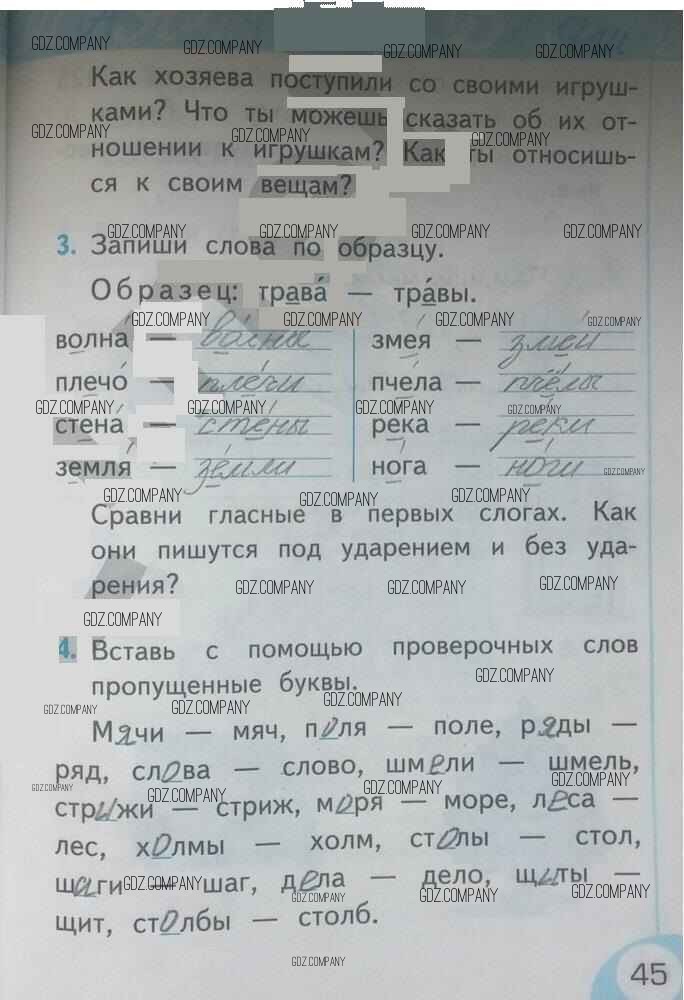 Как хозяева поступили со своими игруш-
ками? Что ты можешь сказать об их от-
ношении к игрушкам? Как ты относишь-
ся к своим вещам?
3. Запиши слова по образцу.
Образец: трава́ — тра́вы.
волна́ — во́лны змея́ — зме́и
плечо́ — пле́чи пчела́ — пчёлы
стена́ — сте́ны река́ — ре́ки
земля́ — зе́мли нога́ — но́ги
Сравни гласные в первых слогах. Как
они пишутся под ударением и без уда-
рения?
4. Вставь с помощью проверочных слов
пропущенные буквы.
Мячи — мяч, поля — поле, ряды —
ряд, слова — слово, шмели — шмель,
стрижи — стриж, моря — море, леса —
лес, холмы — холм, столы — стол,
шаги — шаг, дела — дело, щиты —
щит, столбы — столб.
45
GDZ.COMPANY